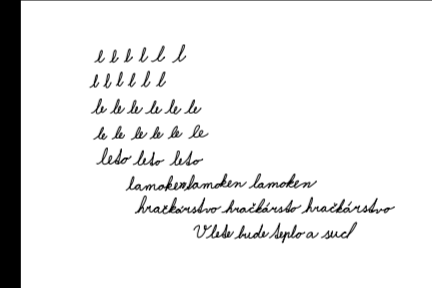 l l l l l l
l l l l l l
le le le le le le
le le le le le le
leto leto leto
lamoken lamoken lamoken
hračkárstvo hračkársto hračkárstvo
V lete bude teplo a such